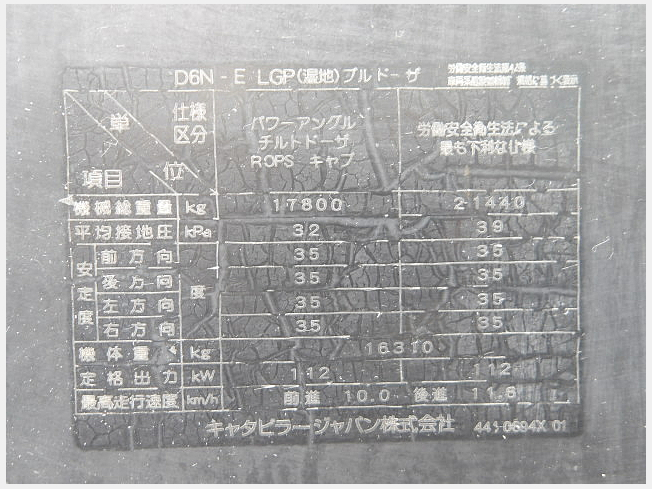 D6N-E LGP(湿地)ブルドーザ 労働安全衛生法第42条
単位 仕様区分 項目 パワーアングル チルトドーザ ROPS キャブ 労働安全衛生法による 最も不利な仕様
機械総重量 kg 17800 21440
平均接地圧 kPa 32 39
安定度 前方向 度 35 35
後方向 35 35
左方向 35 35
右方向 35 35
機体重量 kg 16310
定格出力 kW 112 112
最高走行速度 km/h 前進 10.0 後進 11.6
キャタピラージャパン株式会社 441-0694X 01